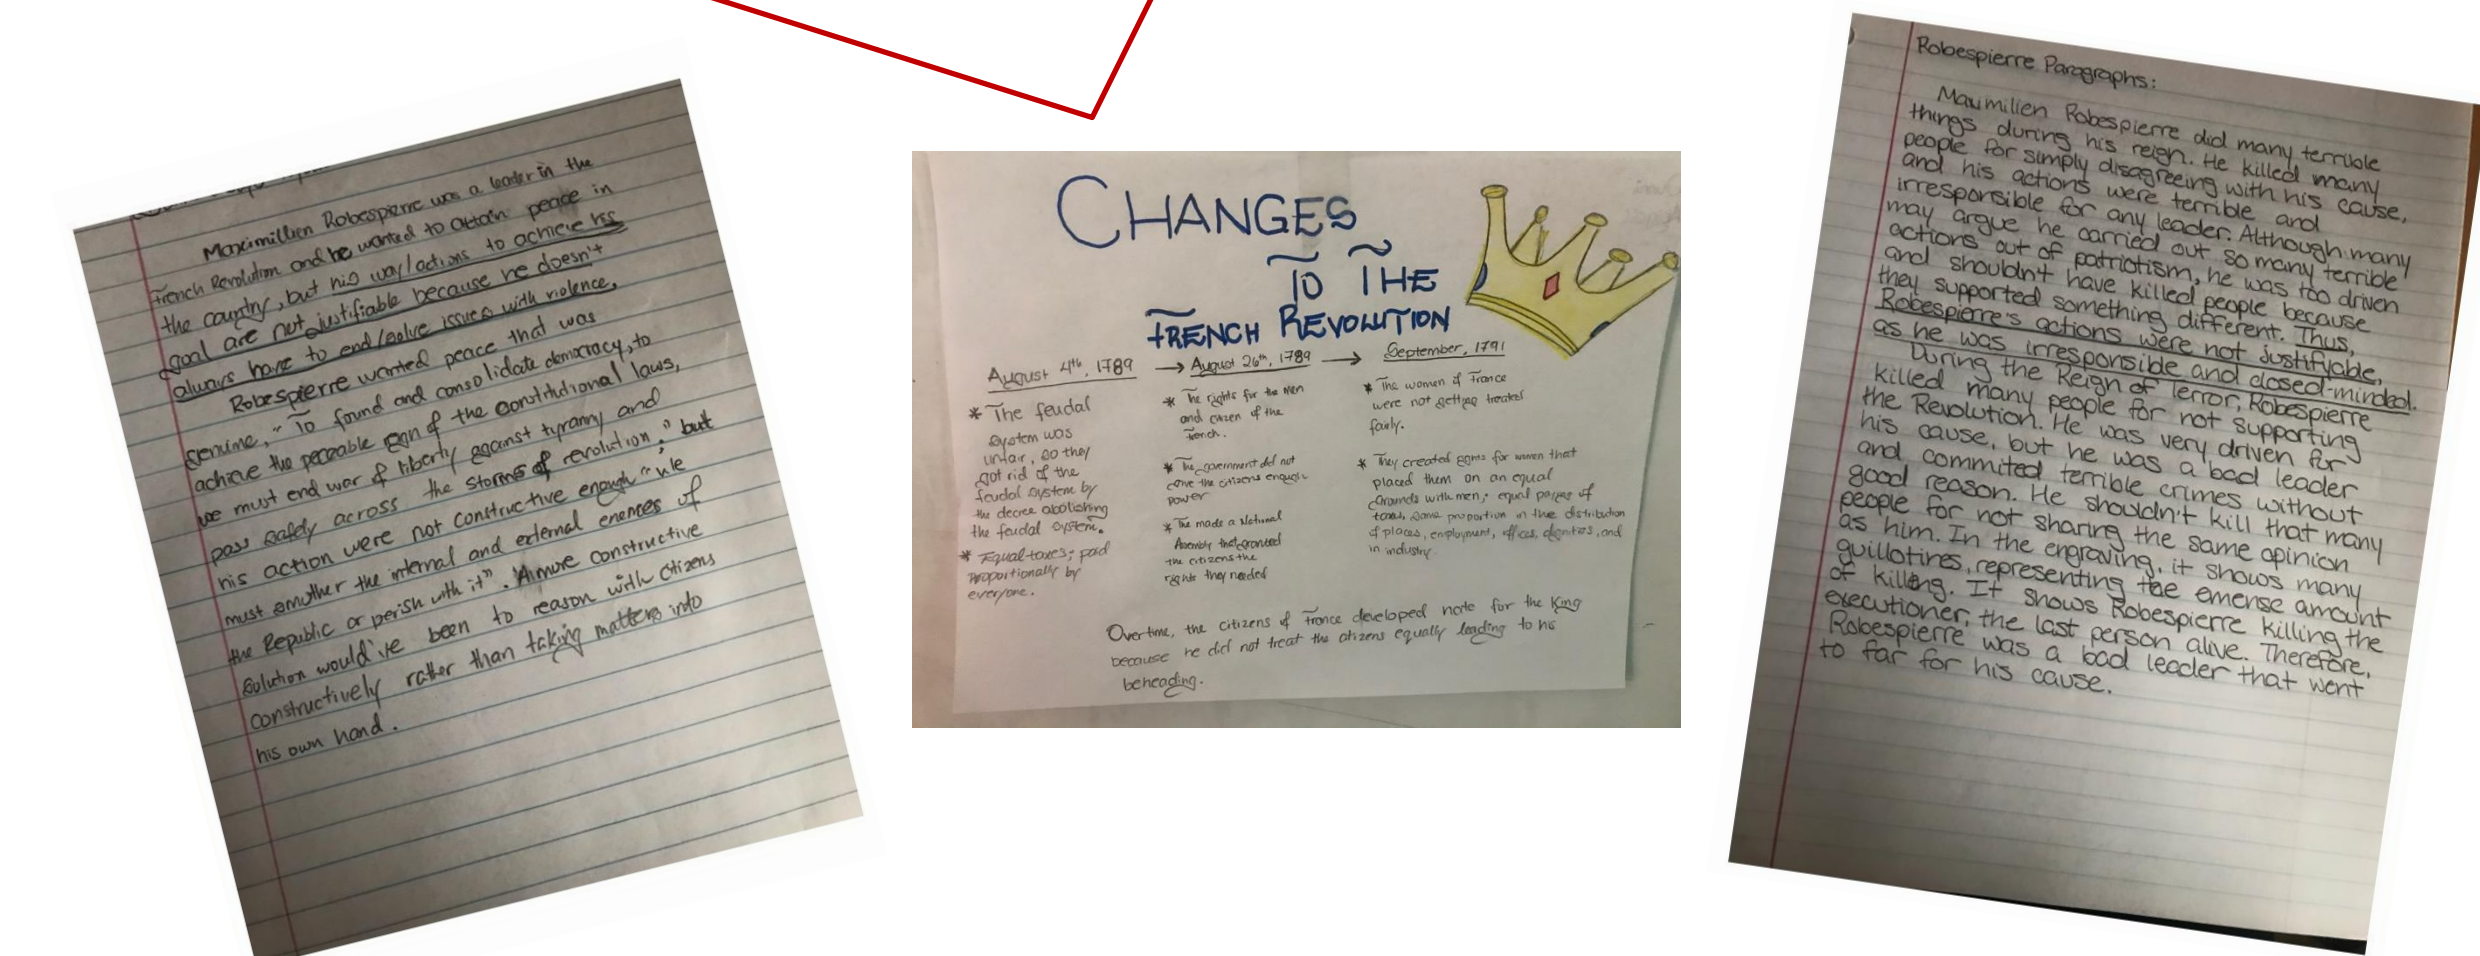 Maximillien Robespierre was a leader in the
French Revolution and he wanted to attain peace in
the country, but his way/actions to achieve his
goal are not justifiable because he doesn't
always have to end/solve issues with violence.
Robespierre wanted peace that was
genuine, "To found and consolidate democracy, to
achieve the peceable reign of the constitutional laws,
we must end war of liberty against tyranny and
pass safely across the storms of revolution;" but
his action were not constructive enough "we
must smother the internal and external enemies of
the Republic or perish with it". A more constructive
solution would've been to reason with citizens
constructively rather than taking matters into
his own hand.
CHANGES
TO THE
FRENCH REVOLUTION
August 4th, 1789 → August 26th, 1789 → September, 1791
* The feudal
system was
unfair, so they
got rid of the
feudal system by
the decree abolishing
the feudal system.
* Equal taxes; paid
proportionally by
everyone.
* The rights for the Men
and citizen of the
French.
* The government did not
give the citizens enough
power
* The made a National
Assembly that granted
the citizens the
rights they needed
* The women of France
were not getting treated
fairly.
* They created for women that
placed them on an equal
grounds with men; equal of
taxes, same proportion in the distribution
of places, employment, offices, dignities, and
in industry.
Overtime, the citizens of France developed hate for the King
because he did not treat the citizens equally leading to his
beheading.
Robespierre Paragraphs:
Maximilien Robespierre did many terrible
things during his reign. He killed many
people for simply disagreeing with his cause,
and his actions were terrible and
irresponsible for any leader. Although many
may argue he carried out so many terrible
actions out of patriotism, he was too driven
and shouldn't have killed people because
they supported something different. Thus,
Robespierre's actions were not justifyable,
as he was irresponsible and closed-minded.
During the Reign of Terror, Robespierre
killed many people for not supporting
the Revolution. He was very driven for
his cause, but he was a bad leader
and commited terrible crimes without
good reason. He shouldn't kill that many
people for not sharing the same opinion
as him. In the engraving, it shows many
guillotines, representing the emense amount
of killing. It shows Robespierre killing the
executioner, the last person alive. Therefore,
Robespierre was a bad leader that went
to far for his cause.